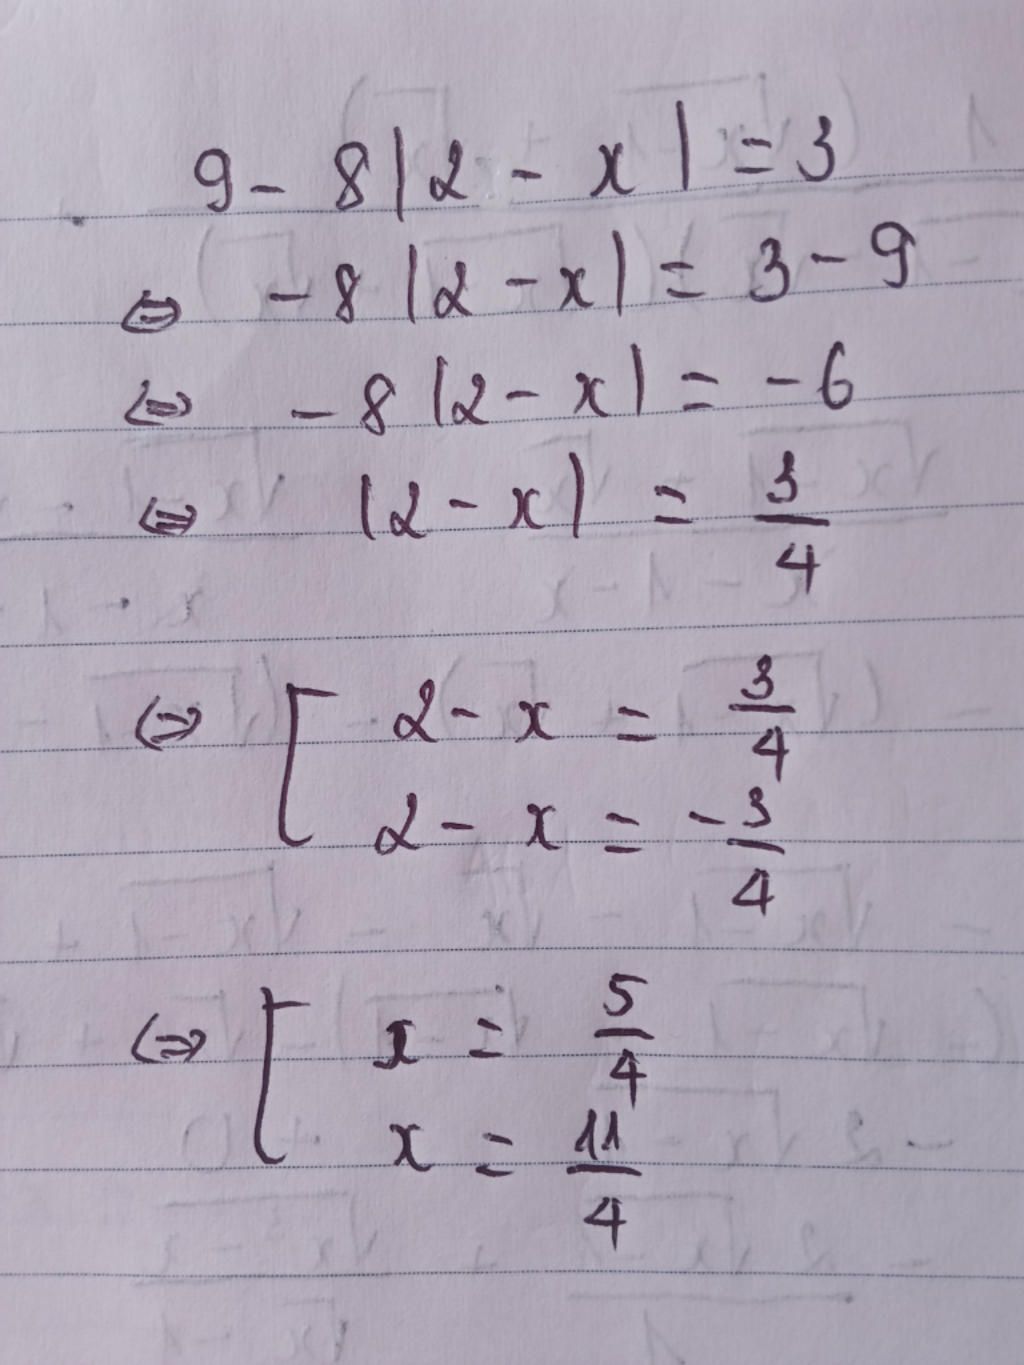 9 - 8|2 - x| = 3
⇔ -8|2 - x| = 3 - 9
⇔ -8|2 - x| = -6
⇔ |2 - x| = 3/4
⇔ [ 2 - x = 3/4
2 - x = -3/4
⇔ [ x = 5/4
x = 11/4